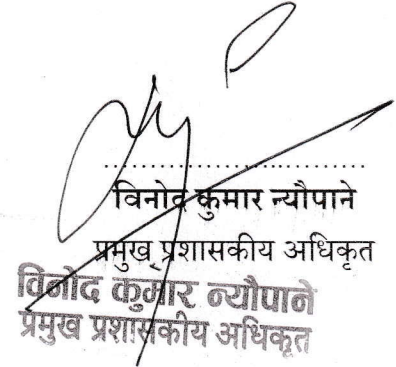 ..............................
विनोद कुमार न्यौपाने
प्रमुख प्रशासकीय अधिकृत
विनोद कुमार न्यौपाने
प्रमुख प्रशासकीय अधिकृत